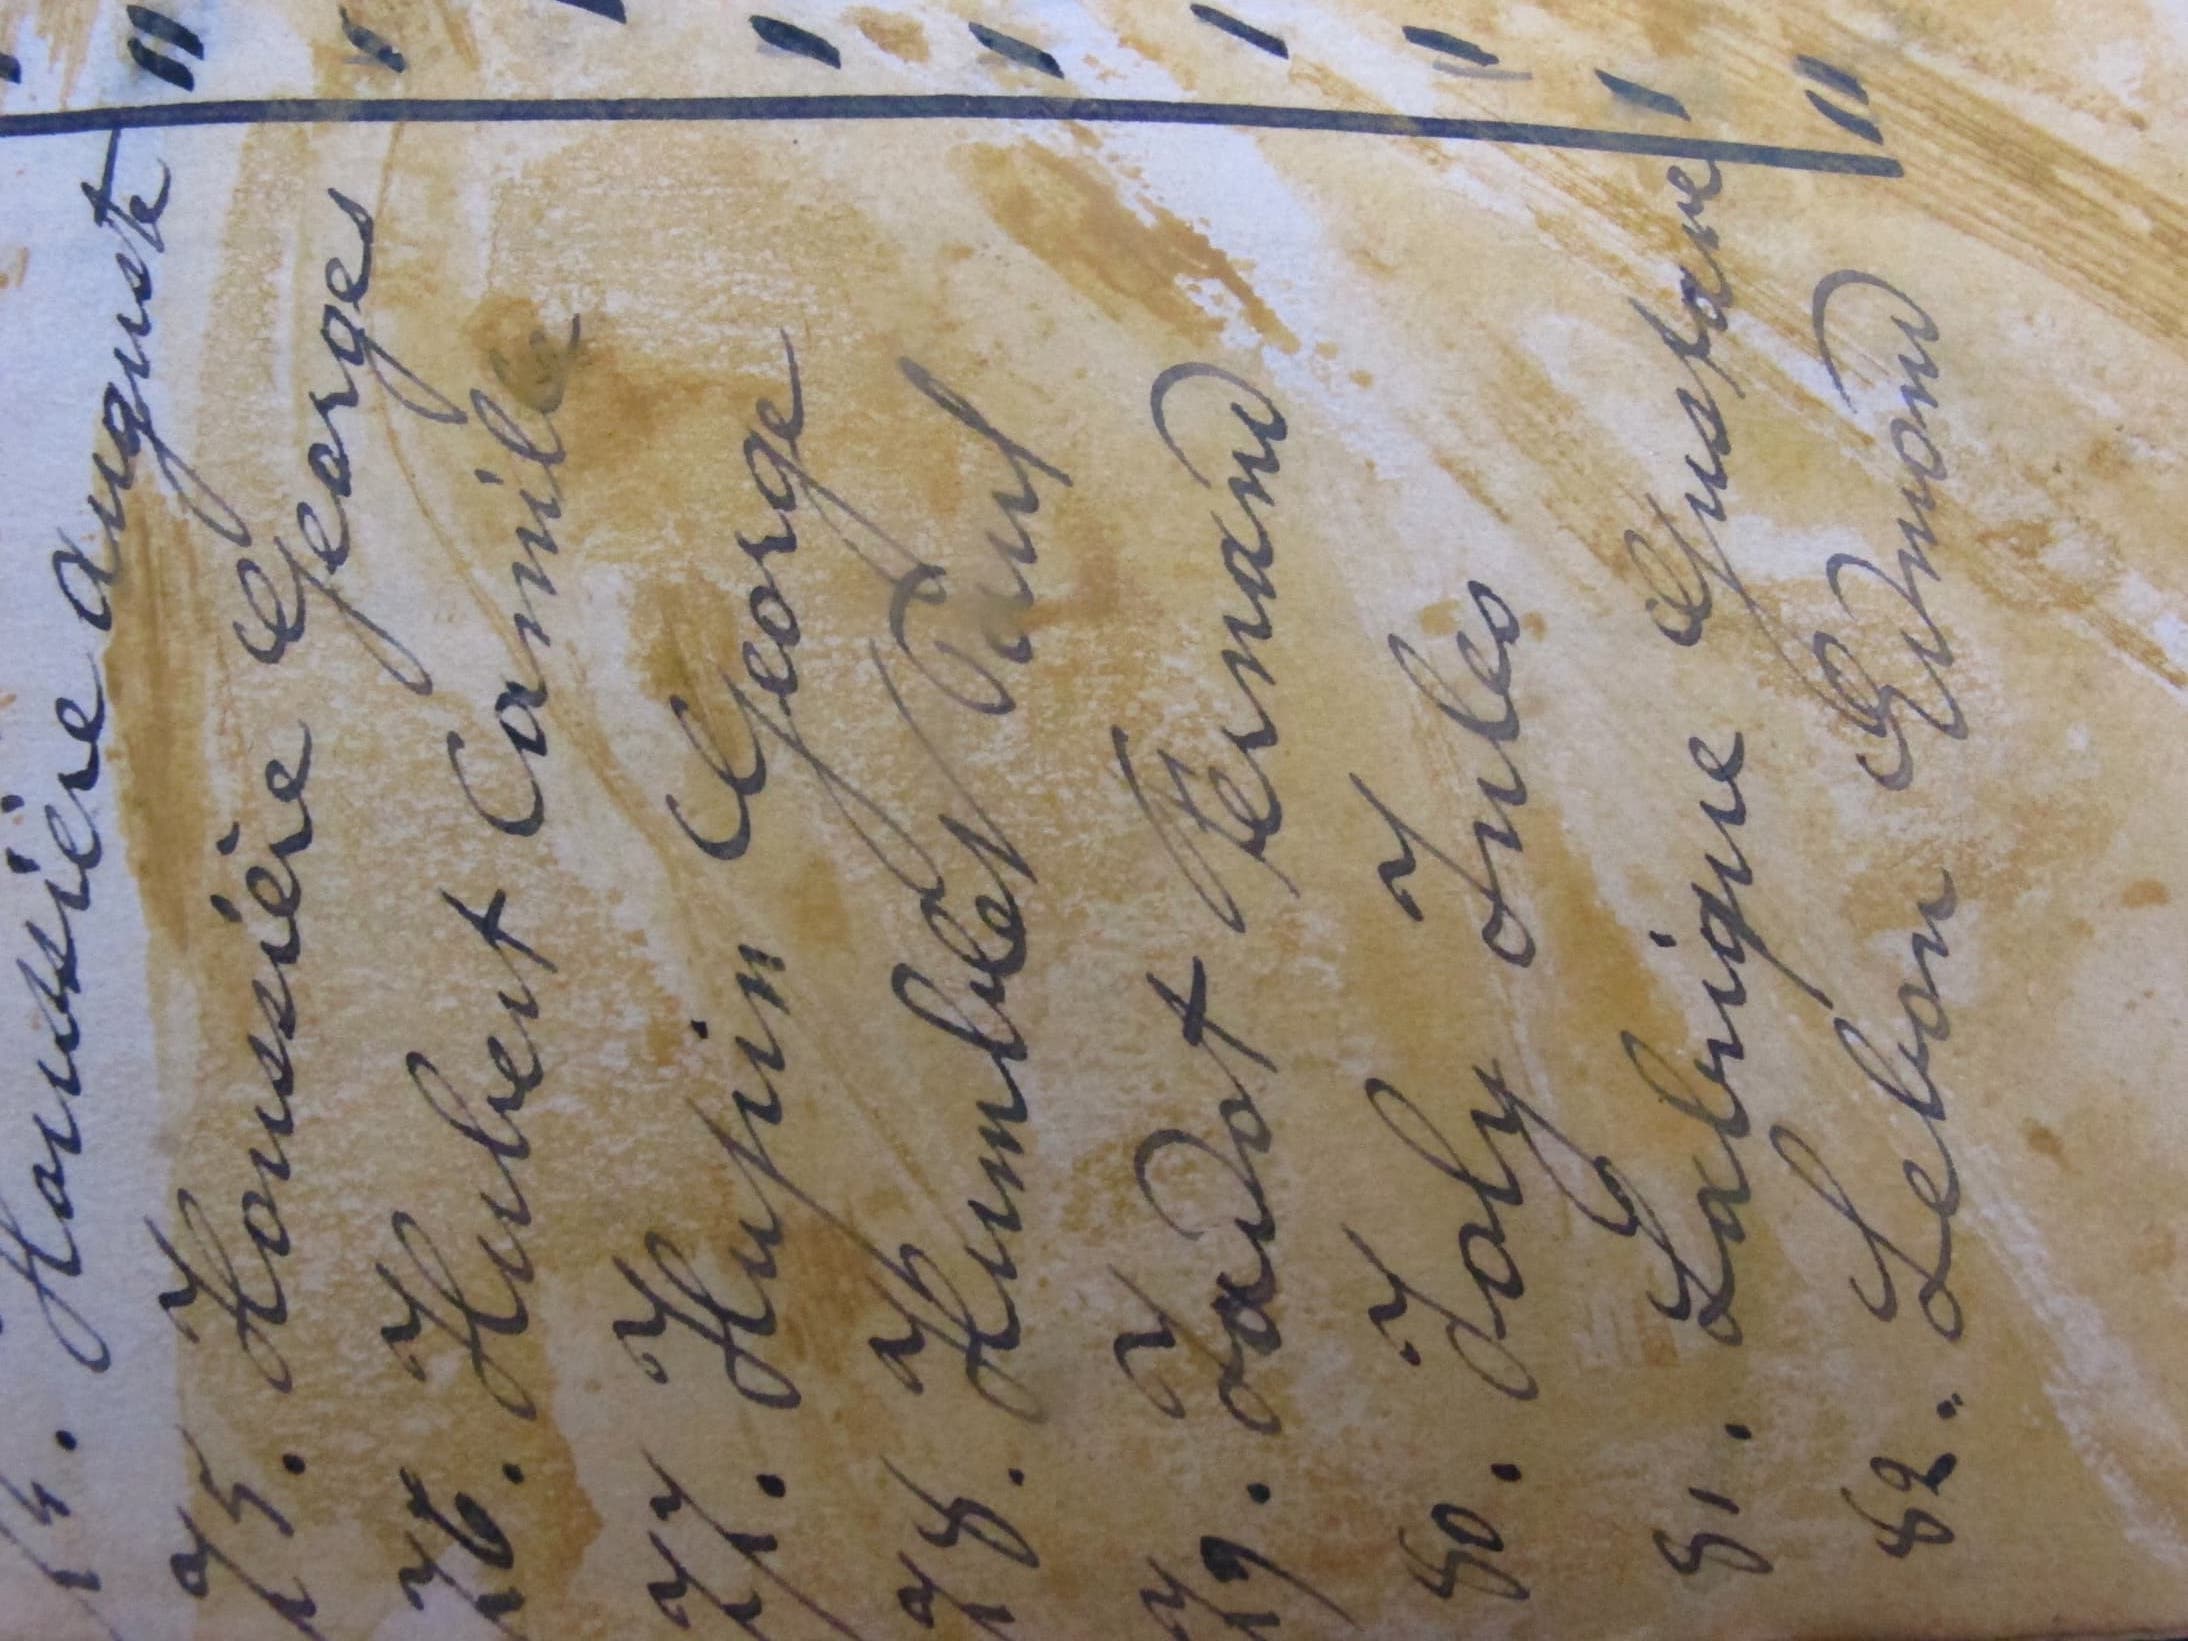 74. Houssière auguste "
75. Houssière Georges "
76. Hubert Camille
77. Hupin George "
78. Humblet Paul "
79. Jadot Fernand "
80. Joly Jules "
81. Labrique Gustave "
82. Lebon Edmond "